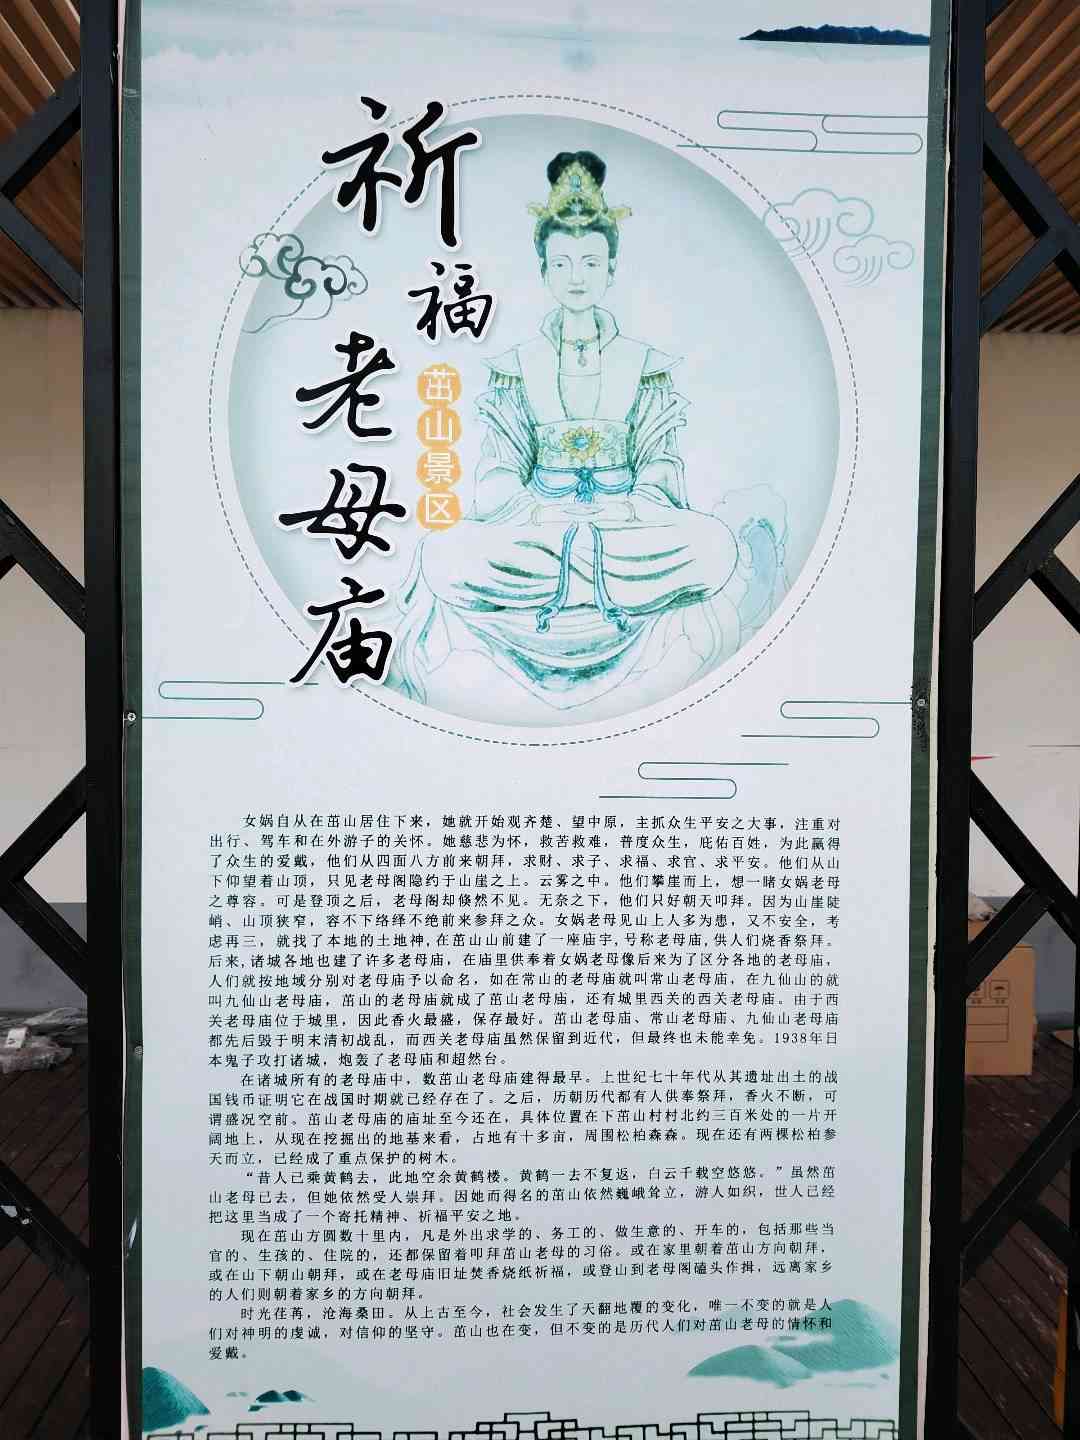 祈福老母庙
茁山景区
女娲自从在茁山居住下来，她就开始观齐楚、望中原，主抓众生平安之大事，注重对
出行、驾车和在外游子的关怀。她慈悲为怀，救苦救难，普度众生，庇佑百姓，为此赢得
了众生的爱戴，他们从四面八方前来朝拜，求财、求子、求福、求官、求平安。他们从山
下仰望着山顶，只见老母阁隐约于山崖之上。云雾之中。他们攀崖而上，想一睹女娲老母
之尊容。可是登顶之后，老母阁却倏然不见。无奈之下，他们只好朝天叩拜。因为山崖陡
峭、山顶狭窄，容不下络绎不绝前来参拜之众。女娲老母见山上人多为患，又不安全，考
虑再三，就找了本地的土地神，在茁山山前建了一座庙宇，号称老母庙，供人们烧香祭拜。
后来，诸城各地也建了许多老母庙，在庙里供奉着女娲老母像后来为了区分各地的老母庙，
人们就按地域分别对老母庙予以命名，如在常山的老母庙就叫常山老母庙，在九仙山的就
叫九仙山老母庙，茁山的老母庙就成了茁山老母庙，还有城里西关的西关老母庙。由于西
关老母庙位于城里，因此香火最盛，保存最好。茁山老母庙、常山老母庙、九仙山老母庙
都先后毁于明末清初战乱，而西关老母庙虽然保留到近代，但最终也未能幸免。1938年日
本鬼子攻打诸城，炮轰了老母庙和超然台。
在诸城所有的老母庙中，数茁山老母庙建得最早。上世纪七十年代从其遗址出土的战
国钱币证明它在战国时期就已经存在了。之后，历朝历代都有人供奉祭拜，香火不断，可
谓盛况空前。茁山老母庙的庙址至今还在，具体位置在下茁山村村北约三百米处的一片开
阔地上，从现在挖掘出的地基来看，占地有十多亩，周围松柏森森。现在还有两棵松柏参
天而立，已经成了重点保护的树木。
“昔人已乘黄鹤去，此地空余黄鹤楼。黄鹤一去不复返，白云千载空悠悠。”虽然茁
山老母已去，但她依然受人崇拜。因她而得名的茁山依然巍峨耸立，游人如织，世人已经
把这里当成了一个寄托精神、祈福平安之地。
现在茁山方圆数十里内，凡是外出求学的、务工的、做生意的、开车的，包括那些当
官的、生孩的、住院的，还都保留着叩拜茁山老母的习俗。或在家里朝着茁山方向朝拜，
或在山下朝山朝拜，或在老母庙旧址焚香烧纸祈福，或登山到老母阁磕头作揖，远离家乡
的人们则朝着家乡的方向朝拜。
时光荏苒，沧海桑田。从上古至今，社会发生了天翻地覆的变化，唯一不变的就是人
们对神明的虔诚，对信仰的坚守。茁山也在变，但不变的是历代人们对茁山老母的情怀和
爱戴。